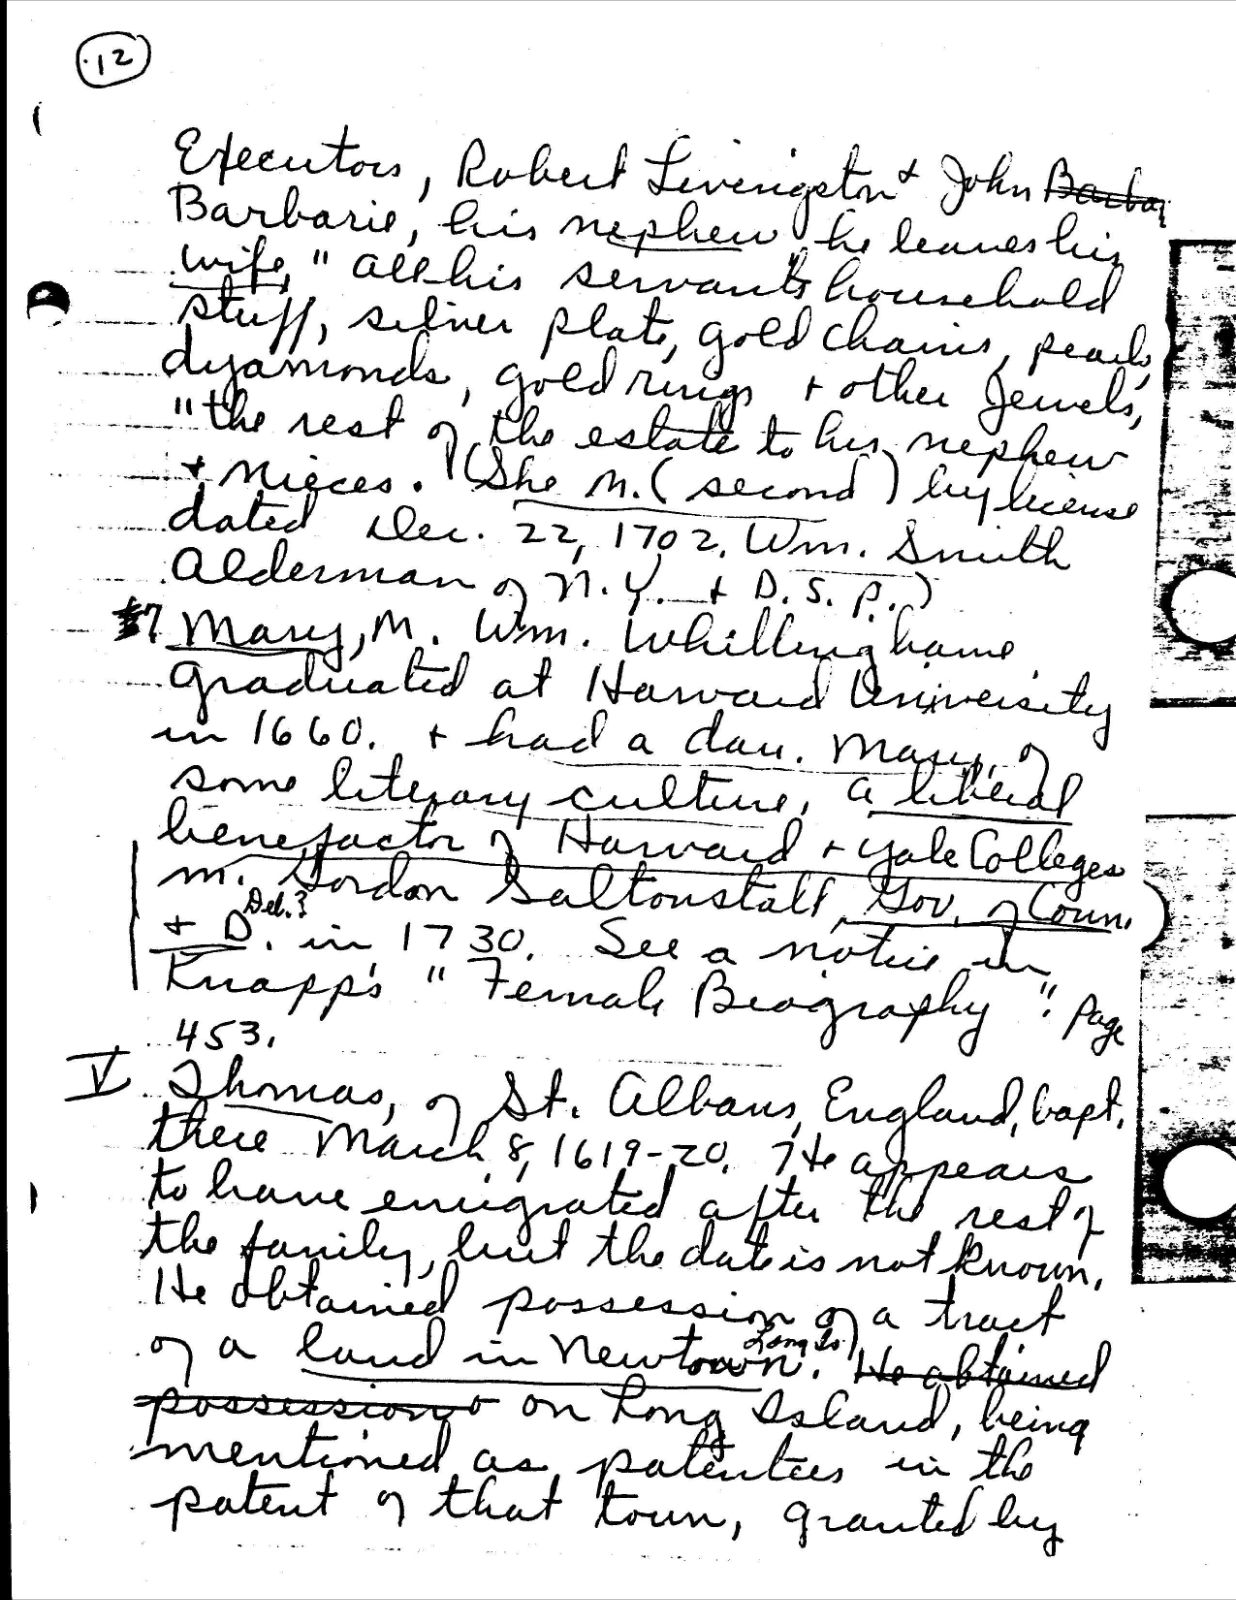 12
Executors, Robert Livingston + John Barbar
Barbarie, his nephew, he leaves his
wife, " all his servants household
stuff, silver plate, gold chains, pearls,
dyamonds, gold rings + other Jewels,
" the rest of the estate to his nephew
+ Nieces. (She M. (second) by license
dated Dec. 22, 1702, Wm. Smith
Alderman of N.Y. + D.S.P.)
#7 Mary, M. Wm. Whillinghame
graduated at Harvard University
in 1660. + had a dau. Mary, of
some literary culture, a liberal
benefactor of Harvard + Yale Colleges
m. Gordon Saltonstall, Gov. of Conn.
+ D. in 1730. See a notice in
Knapp's "Female Biography". Page
453.
V Thomas, of St. Albans, England, bapt.
there March 8, 1619-20. He appears
to have emigrated after the rest of
the family, but the date is not known.
He obtained possession of a tract
Long Is.
of a land in Newtown. He obtained
possession of on Long Island, being
mentioned as patentees in the
patent of that town, granted by